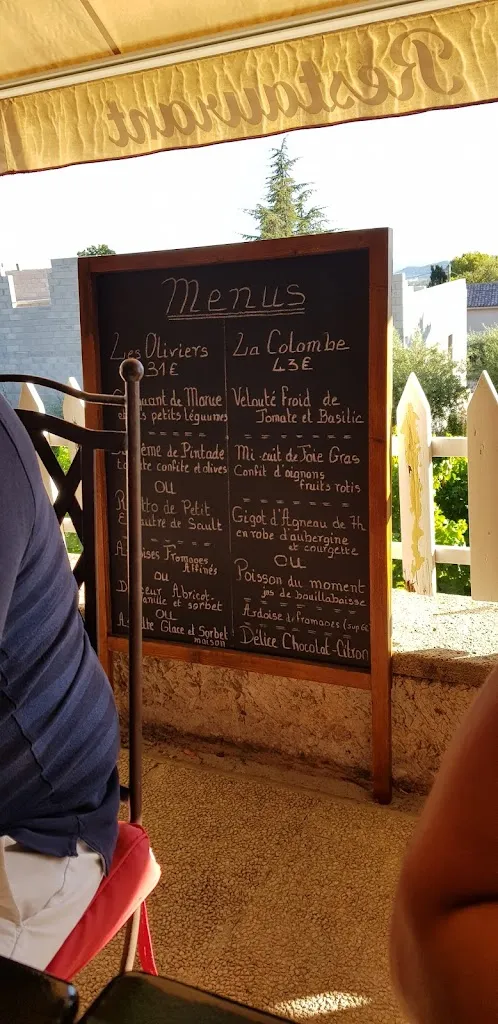 Restaurant
Menus
Les Oliviers
31€
petits légumes
de Pintade
confite et olives
OU
de Petit
Epeautre de Sault
Fromages
Affinés
OU
Abricot
vanille et sorbet
OU
Glace et Sorbet
maison
La Colombe
43€
Velouté Froid de
Tomate et Basilic
Mi-cuit de Foie Gras
Confit d'oignons
fruits rotis
Gigot d'Agneau de 7h
en robe d'aubergine
et courgette
OU
Poisson du moment
jus de bouillabaisse
Ardoise de fromages (sup 6€)
Délice Chocolat-Citron